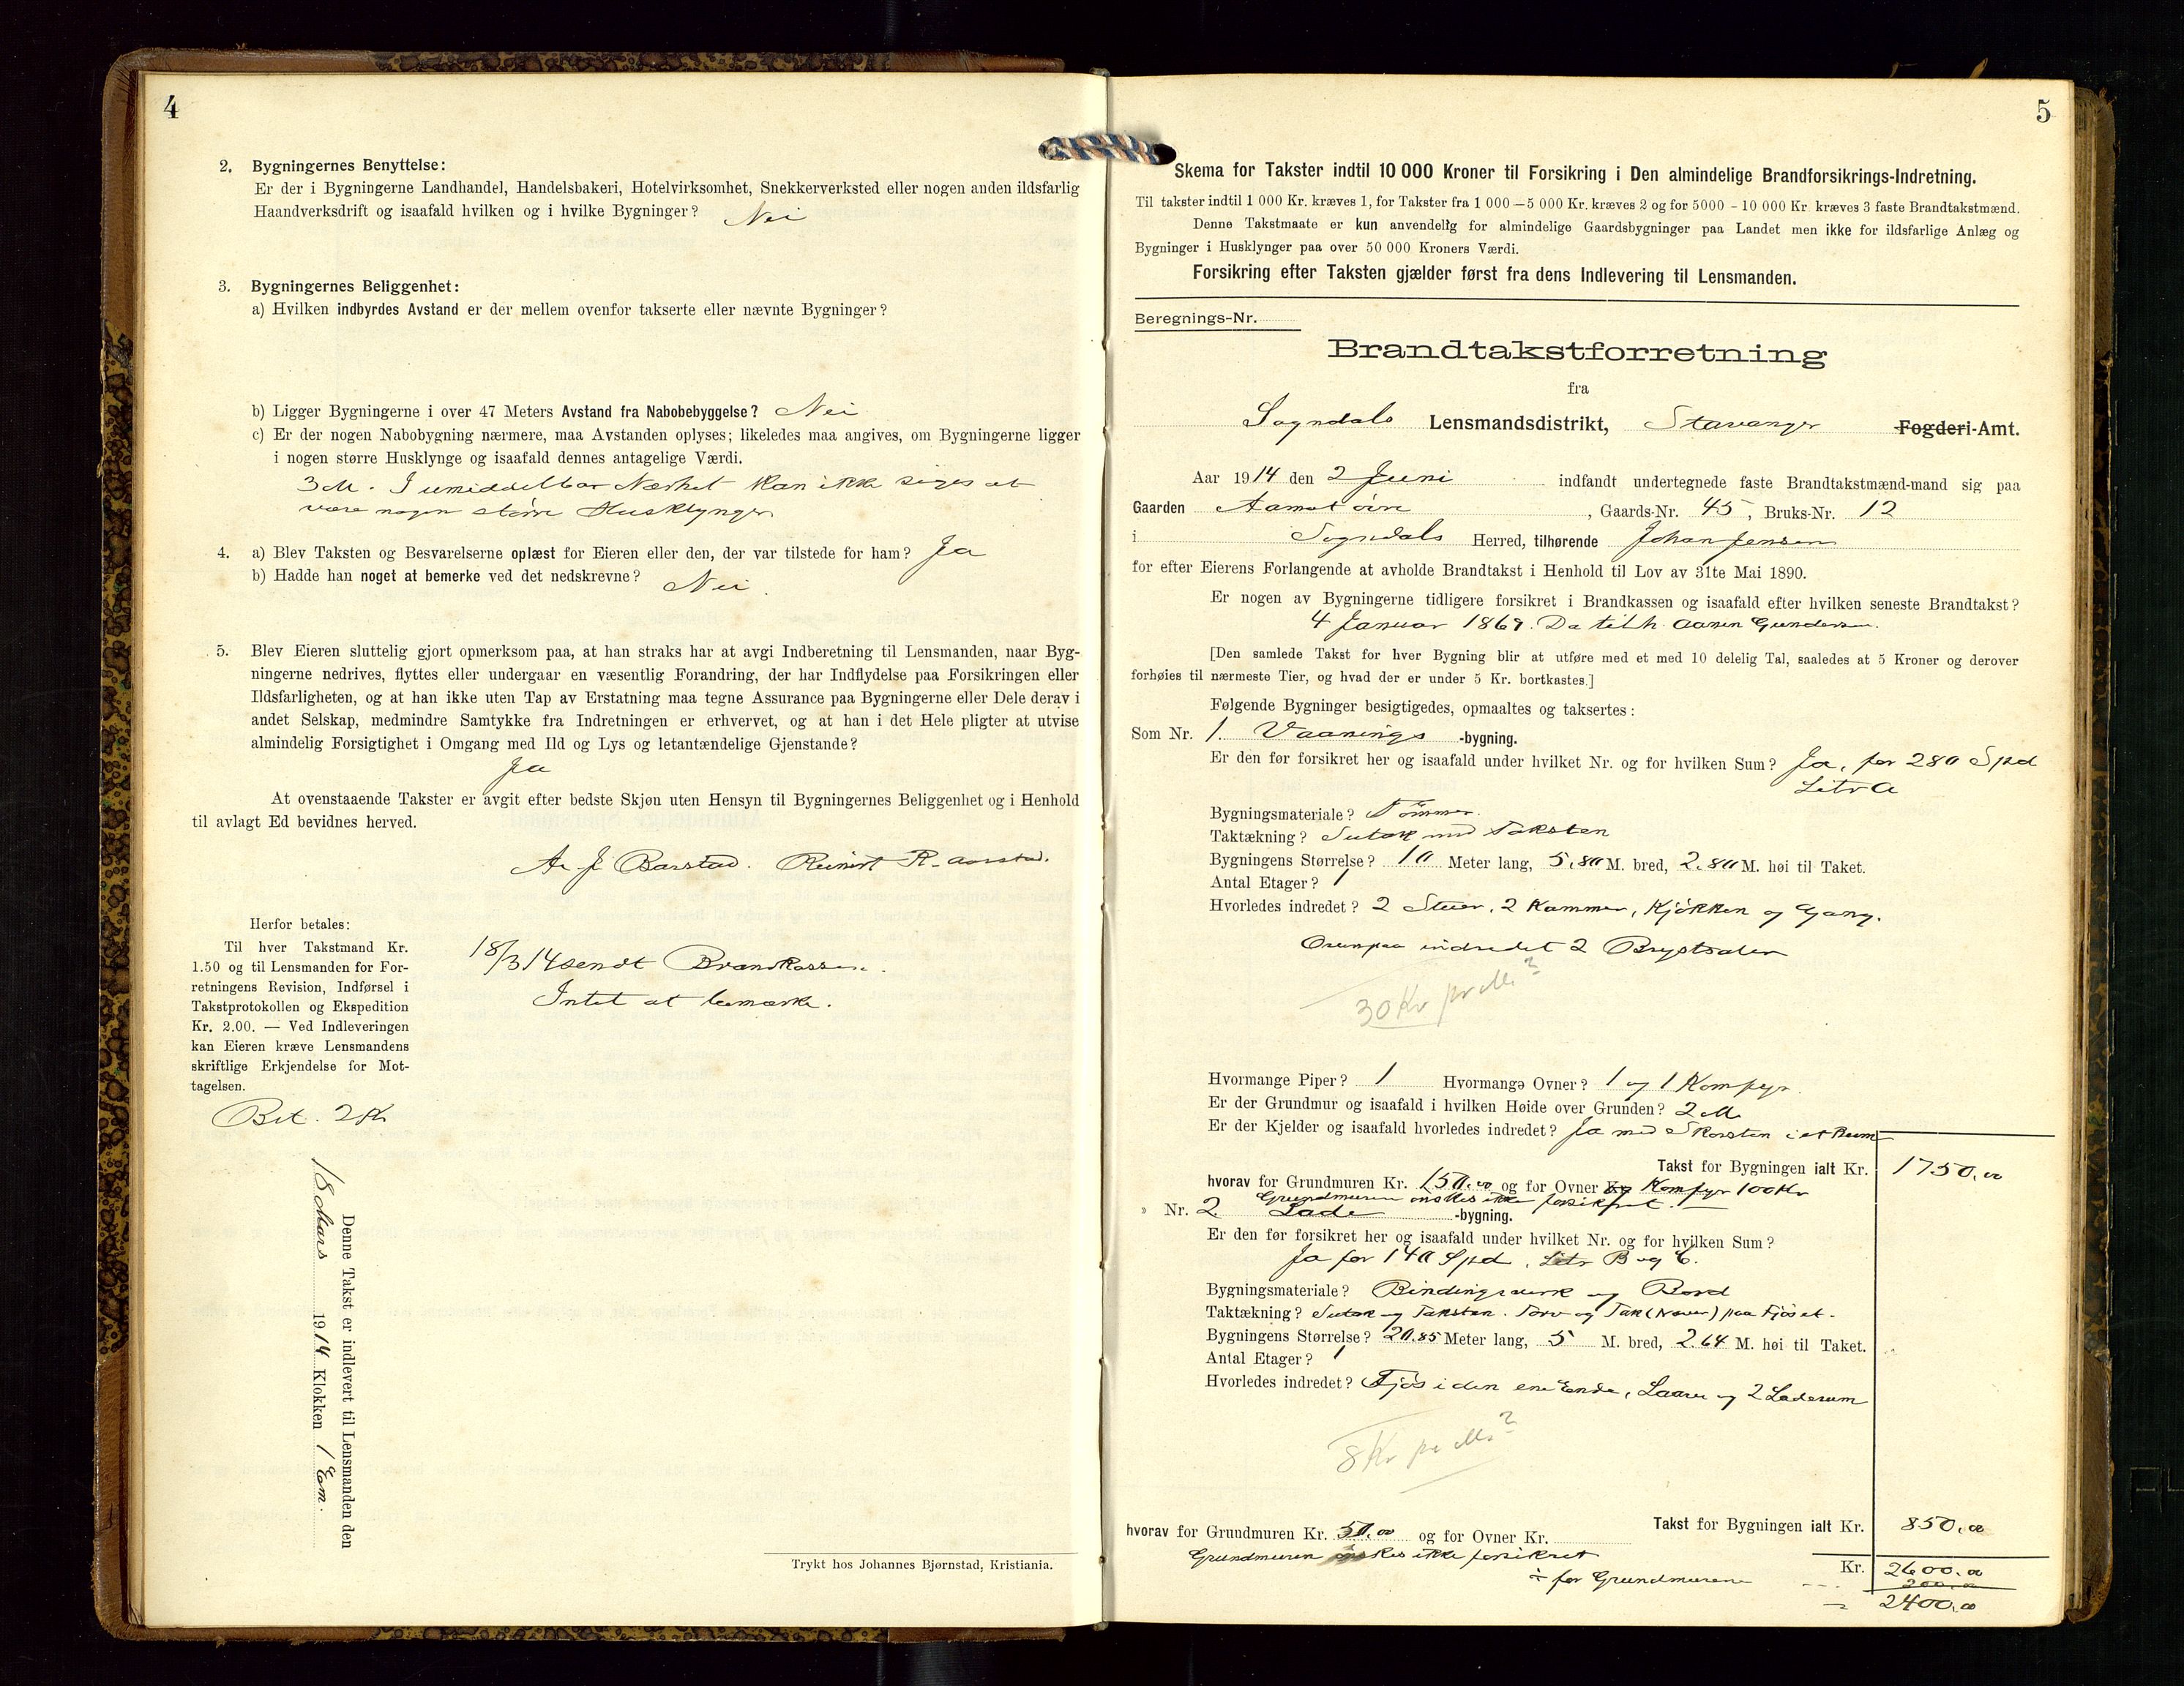 4
2. Bygningernes Benyttelse:
Er der i Bygningerne Landhandel, Handelsbakeri, Hotelvirksomhet, Snekkerverksted eller nogen anden ildsfarlig
Haandverksdrift og isaafald hvilken og i hvilke Bygninger? Nei
3. Bygningernes Beliggenhet:
a) Hvilken indbyrdes Avstand er der mellem ovenfor takserte eller nævnte Bygninger?
b) Ligger Bygningerne i over 47 Meters Avstand fra Nabobebyggelse? Nei
c) Er der nogen Nabobygning nærmere, maa Avstanden oplyses; likeledes maa angives, om Bygningerne ligger
i nogen større Husklynge og isaafald dennes antagelige Værdi.
3 M. I umiddelbar Nærhet kan ikke siges at
være nogen større Husklynger
4. a) Blev Taksten og Besvarelserne oplæst for Eieren eller den, der var tilstede for ham? Ja
b) Hadde han noget at bemerke ved det nedskrevne? Nei.
5. Blev Eieren sluttelig gjort opmerksom paa, at han straks har at avgi Indberetning til Lensmanden, naar Byg-
ningerne nedrives, flyttes eller undergaar en væsentlig Forandring, der har Indflydelse paa Forsikringen eller
Ildsfarligheten, og at han ikke uten Tap av Erstatning maa tegne Assurance paa Bygningerne eller Dele derav i
andet Selskap, medmindre Samtykke fra Indretningen er erhvervet, og at han i det Hele pligter at utvise
almindelig Forsigtighet i Omgang med Ild og Lys og letantændelige Gjenstande?
Ja
At ovenstaaende Takster er avgit efter bedste Skjøn uten Hensyn til Bygningernes Beliggenhet og i Henhold
til avlagt Ed bevidnes herved.
A. J. Barstad. Reinert R. Aarstad.
Herfor betales:
Til hver Takstmand Kr.
1.50 og til Lensmanden for For-
retningens Revision, Indførsel i
Takstprotokollen og Ekspedition
Kr. 2.00. — Ved Indleveringen
kan Eieren kræve Lensmandens
skriftlige Erkjendelse for Mot-
tagelsen.
18/3 14 sendt Brandkassen.
Intet at bemærke.
Bet. 2 Kr
Denne Takst er indlevert til Lensmanden den
18 Mars 1914 Klokken 1 Em.
Trykt hos Johannes Bjørnstad, Kristiania.
5
Skema for Takster indtil 10 000 Kroner til Forsikring i Den almindelige Brandforsikrings-Indretning.
Til takster indtil 1 000 Kr. kræves 1, for Takster fra 1 000—5 000 Kr. kræves 2 og for 5000 - 10 000 Kr. kræves 3 faste Brandtakstmænd.
Denne Takstmaate er kun anvendelig for almindelige Gaardsbygninger paa Landet men ikke for ildsfarlige Anlæg og
Bygninger i Husklynger paa over 50 000 Kroners Værdi.
Forsikring efter Taksten gjælder først fra dens Indlevering til Lensmanden.
Beregnings-Nr.
Brandtakstforretning
fra
Sogndals Lensmandsdistrikt, Stavanger Fogderi-Amt.
Aar 1914 den 2 Juni indfandt undertegnede faste Brandtakstmænd-mand sig paa
Gaarden Aamotøire, Gaards-Nr. 45, Bruks-Nr. 12
i Sogndals Herred, tilhørende Johan Jensen
for efter Eierens Forlangende at avholde Brandtakst i Henhold til Lov av 31te Mai 1890.
Er nogen av Bygningerne tidligere forsikret i Brandkassen og isaafald efter hvilken seneste Brandtakst?
4 Januar 1869. Da tilh. Aanen Gundersen.
[Den samlede Takst for hver Bygning blir at utføre med et med 10 delelig Tal, saaledes at 5 Kroner og derover
forhøies til nærmeste Tier, og hvad der er under 5 Kr. bortkastes.]
Følgende Bygninger besigtigedes, opmaaltes og taksertes:
Som Nr. 1. Vaanings-bygning.
Er den før forsikret her og isaafald under hvilket Nr. og for hvilken Sum? Ja, for 280 Spd
Litr A
Bygningsmateriale? Tømmer.
Taktækning? Sutak med Taksten
Bygningens Størrelse? 10 Meter lang, 5,80 M. bred, 2.80 M. høi til Taket.
Antal Etager? 1
Hvorledes indredet? 2 Stuer, 2 Kammer, Kjøkken og Gang.
Ovenpaa indredet 2 Brystsaler
30 Kr pr M²
Hvormange Piper? 1 Hvormange Ovner? 1 og 1 Komfyr.
Er der Grundmur og isaafald i hvilken Høide over Grunden? 2 M
Er der Kjelder og isaafald hvorledes indredet? Ja med Skorsten i et Rum
Takst for Bygningen ialt Kr. 1750,00
hvorav for Grundmuren Kr. 150,00 og for Ovner Kr Komfyr 100 Kr
Grundmuren ønskes ikke forsikret.
» Nr. 2. Lade-bygning.
Er den før forsikret her og isaafald under hvilket Nr. og for hvilken Sum?
Ja for 140 Spd, Litr B og C.
Bygningsmateriale? Bindingsverk og Bord
Taktækning? Sutak og Taksten. Torv og Tak (Næver) paa Fjøset.
Bygningens Størrelse? 20.85 Meter lang, 5 M. bred, 2.64 M. høi til Taket.
Antal Etager? 1
Hvorledes indredet? Fjøs i den ene Ende, Laave og 2 Laderum
8 Kr pr M²
Takst for Bygningen ialt Kr. 850,00
hvorav for Grundmuren Kr. 50,00 og for Ovner Kr.
Grundmuren ønskes ikke forsikret
Kr. 2600,00
÷ for Grundmurene 200,00
2400,00